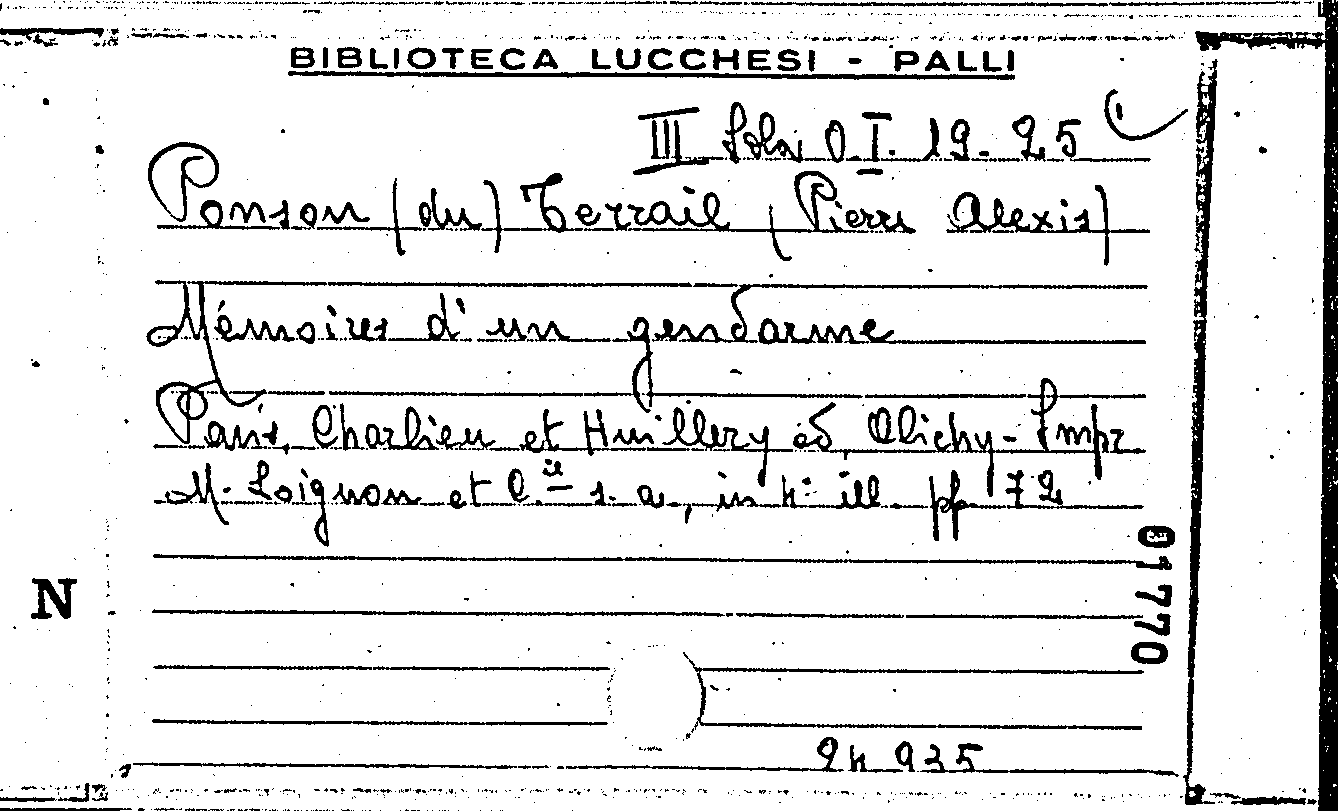 BIBLIOTECA LUCCHESI - PALLI
III Sala O.I. 19-25 (1
Ponson (du) Terrail (Pierre Alexis)
Mémoires d'un gendarme
Paris, Charlieu et Huillery éd, Clichy - Impr
M. Loignon et C.ie s. a., in 4° ill. pp. 72
N
01770
24 935